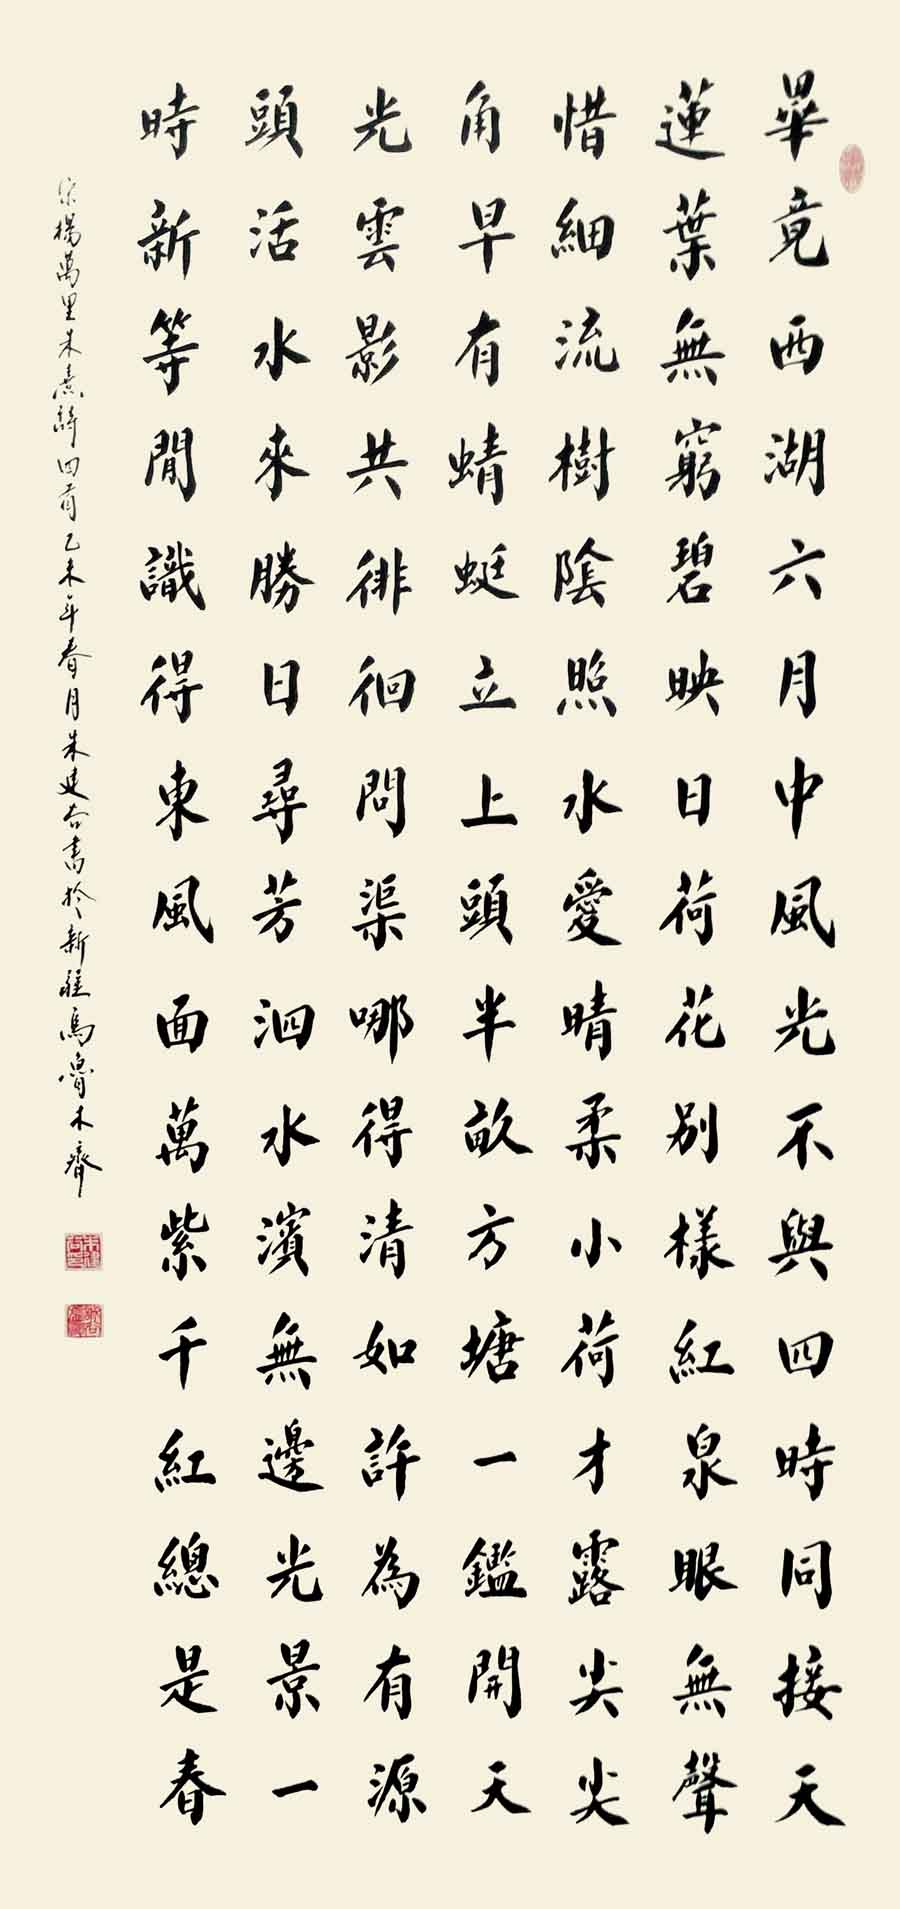 畢竟西湖六月中風光不與四時同接天
蓮葉無窮碧映日荷花別樣紅泉眼無聲
惜細流樹陰照水愛晴柔小荷才露尖尖
角早有蜻蜓立上頭半畝方塘一鑑開天
光雲影共徘徊問渠哪得清如許為有源
頭活水來勝日尋芳泗水濱無邊光景一
時新等閒識得東風面萬紫千紅總是春
宋楊萬里朱熹詩四首乙未年春月朱建谷書於新疆烏魯木齊